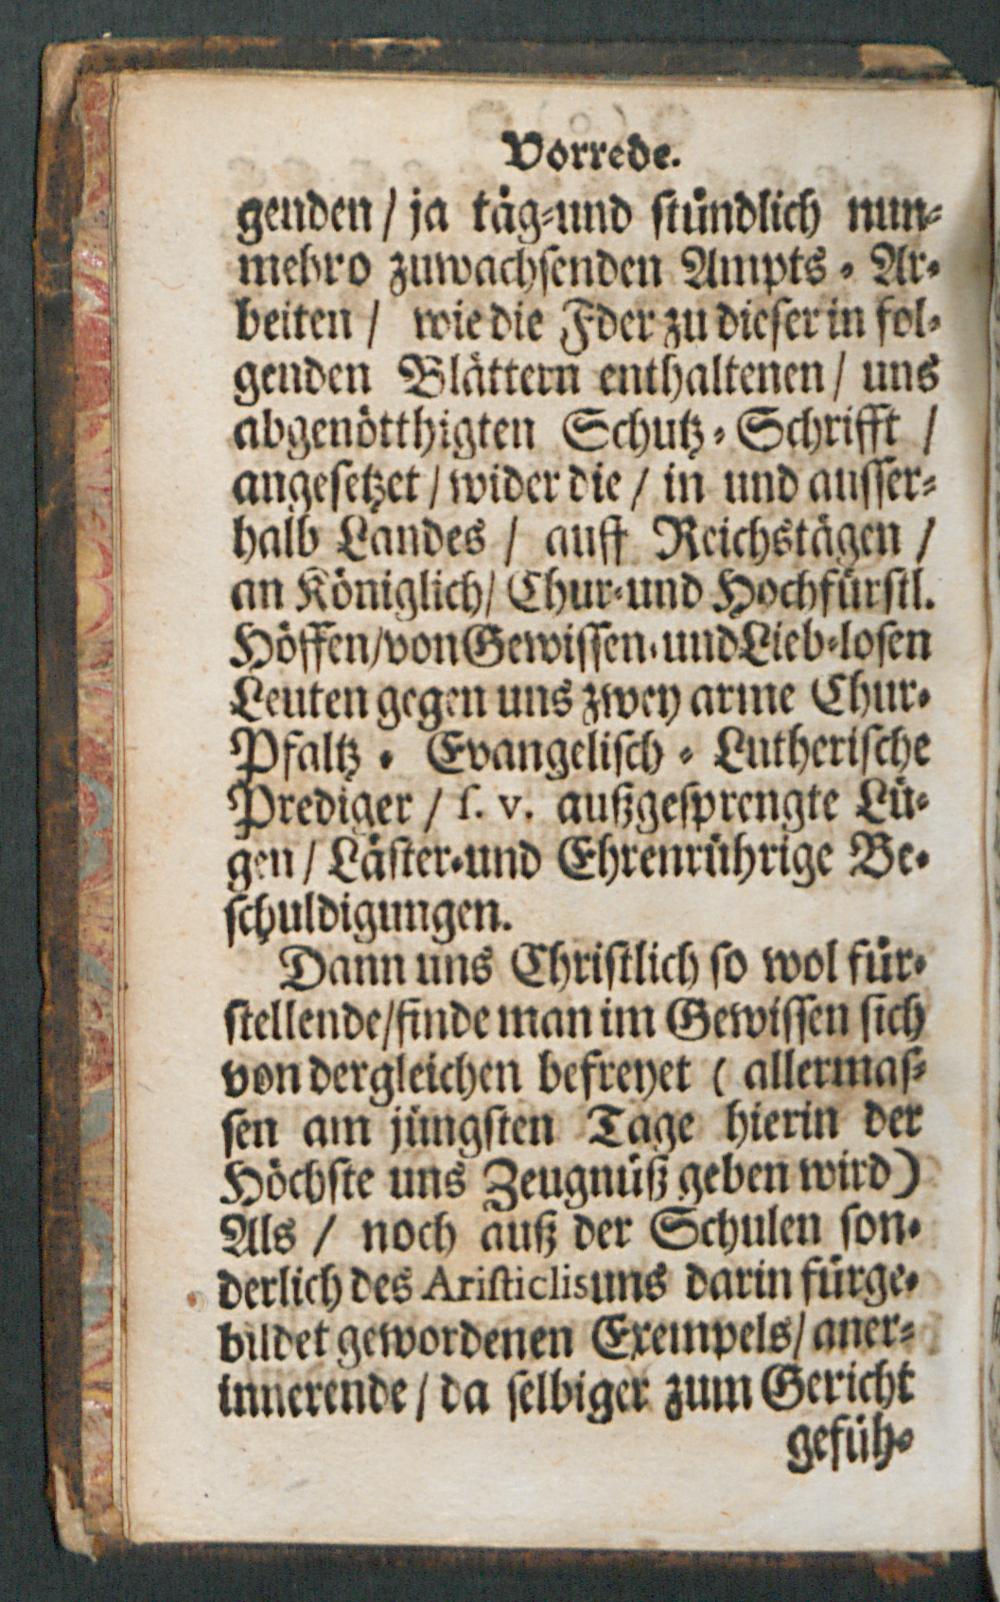 Vorrede.
genden / ja täg-und stündlich nun-
mehro zuwachsenden Ampts - Ar-
beiten / wie die Fder zu dieser in fol-
genden Blättern enthaltenen / uns
abgenötthigten Schutz - Schrifft /
angesetzet / wider die / in und ausser-
halb Landes / auff Reichstägen /
an Königlich / Chur-und Hochfürstl.
Höffen / von Gewissen- und Lieb-losen
Leuten gegen uns zwey arme Chur-
Pfaltz - Evangelisch - Lutherische
Prediger / s. v. außgesprengte Lü-
gen / Läster-und Ehrenrührige Be-
schuldigungen.
Dann uns Christlich so wol für-
stellende / finde man im Gewissen sich
von dergleichen befreyet ( allermas-
sen am jüngsten Tage hierin der
Höchste uns Zeugnüß geben wird )
Als / noch auß der Schulen son-
derlich des Aristiclis uns darin fürge-
bildet gewordenen Exempels / aner-
innerende / da selbiger zum Gericht
gefüh-